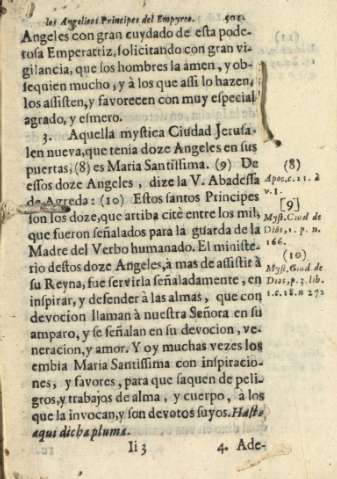 los Angelicos Principes del Empyreo. 501.
Angeles con gran cuydado de esta pode-
rosa Emperatriz, solicitando con gran vi-
gilancia, que los hombres la amen, y ob-
sequien mucho, y à los que assi lo hazen,
los assisten, y favorecen con muy especial
agrado, y esmero.
3. Aquella mystica Ciudad Jerusa-
len nueva, que tenia doze Angeles en sus
puertas, (8) es Maria Santissima. (9) De
essos doze Angeles, dize la V. Abadessa
de Agreda: (10) Estos santos Principes
son los doze, que arriba citè entre los mil,
que fueron señalados para la guarda de la
Madre del Verbo humanado. El ministe-
rio destos doze Angeles, à mas de assistir à
su Reyna, fue servirla señaladamente, en
inspirar, y defender à las almas, que con
devocion llaman à nuestra Señora en su
amparo, y se señalan en su devocion, ve-
neracion, y amor. Y oy muchas vezes los
embia Maria Santissima con inspiracio-
nes, y favores, para que saquen de peli-
gros, y trabajos de alma, y cuerpo, à los
que la invocan, y son devotos suyos. Hasta
aqui dicha pluma.
Ii 3 4. Ade-
(8)
Apoc. c. 21. à
v. 1.
[9]
Myst. Ciud de
Dios, 1. p. n.
166.
(10)
Myst. Ciud de
Dios, p. 3. lib.
1. c. 18. n 272